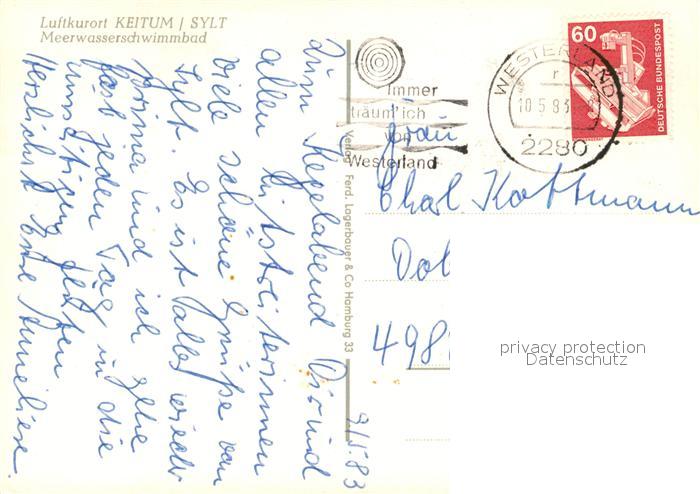 Luftkurort KEITUM / SYLT
Meerwasserschwimmbad
Zum Kegelabend Dir und
allen Mitstreiterinnen
viele schöne Grüße von
Sylt. Es ist alles wieder
prima und ich gehe
fast jeden Tag in die
Herzlichst Eure Anneliese.
9/5.83
Verlag Ferd. Lagerbauer & Co Hamburg 33
Immer
träum' ich
von
Westerland
WESTERLAND
10.5.83
2280
60
DEUTSCHE BUNDESPOST
Frau
Charl. Kottmann
498
privacy protection
Datenschutz